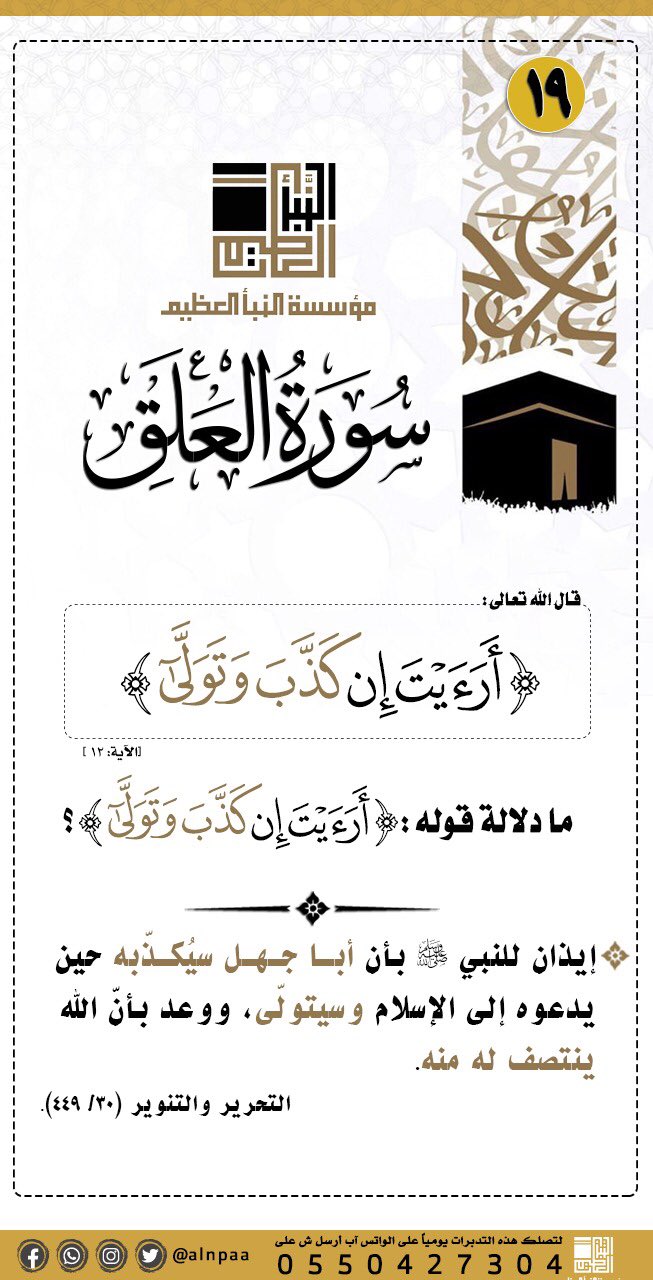 ١٩
النبأ العظيم
مؤسسة النبأ العظيم
سُورَةُ العَلَقِ
قال الله تعالى:
﴿أَرَءَيْتَ إِن كَذَّبَ وَتَوَلَّىٰٓ﴾
[الآية: ١٢]
ما دلالة قوله: ﴿أَرَءَيْتَ إِن كَذَّبَ وَتَوَلَّىٰٓ﴾ ؟
إيذان للنبي ﷺ بأن أبـا جـهـل سيُكـذّبه حين
يدعوه إلى الإسلام وسيتولّى، ووعد بأنّ الله
ينتصف له منه.
التحرير والتنوير (٣٠/ ٤٤٩).
لتصلك هذه التدبرات يومياً على الواتس آب أرسل ش على
0550427304
@alnpaa